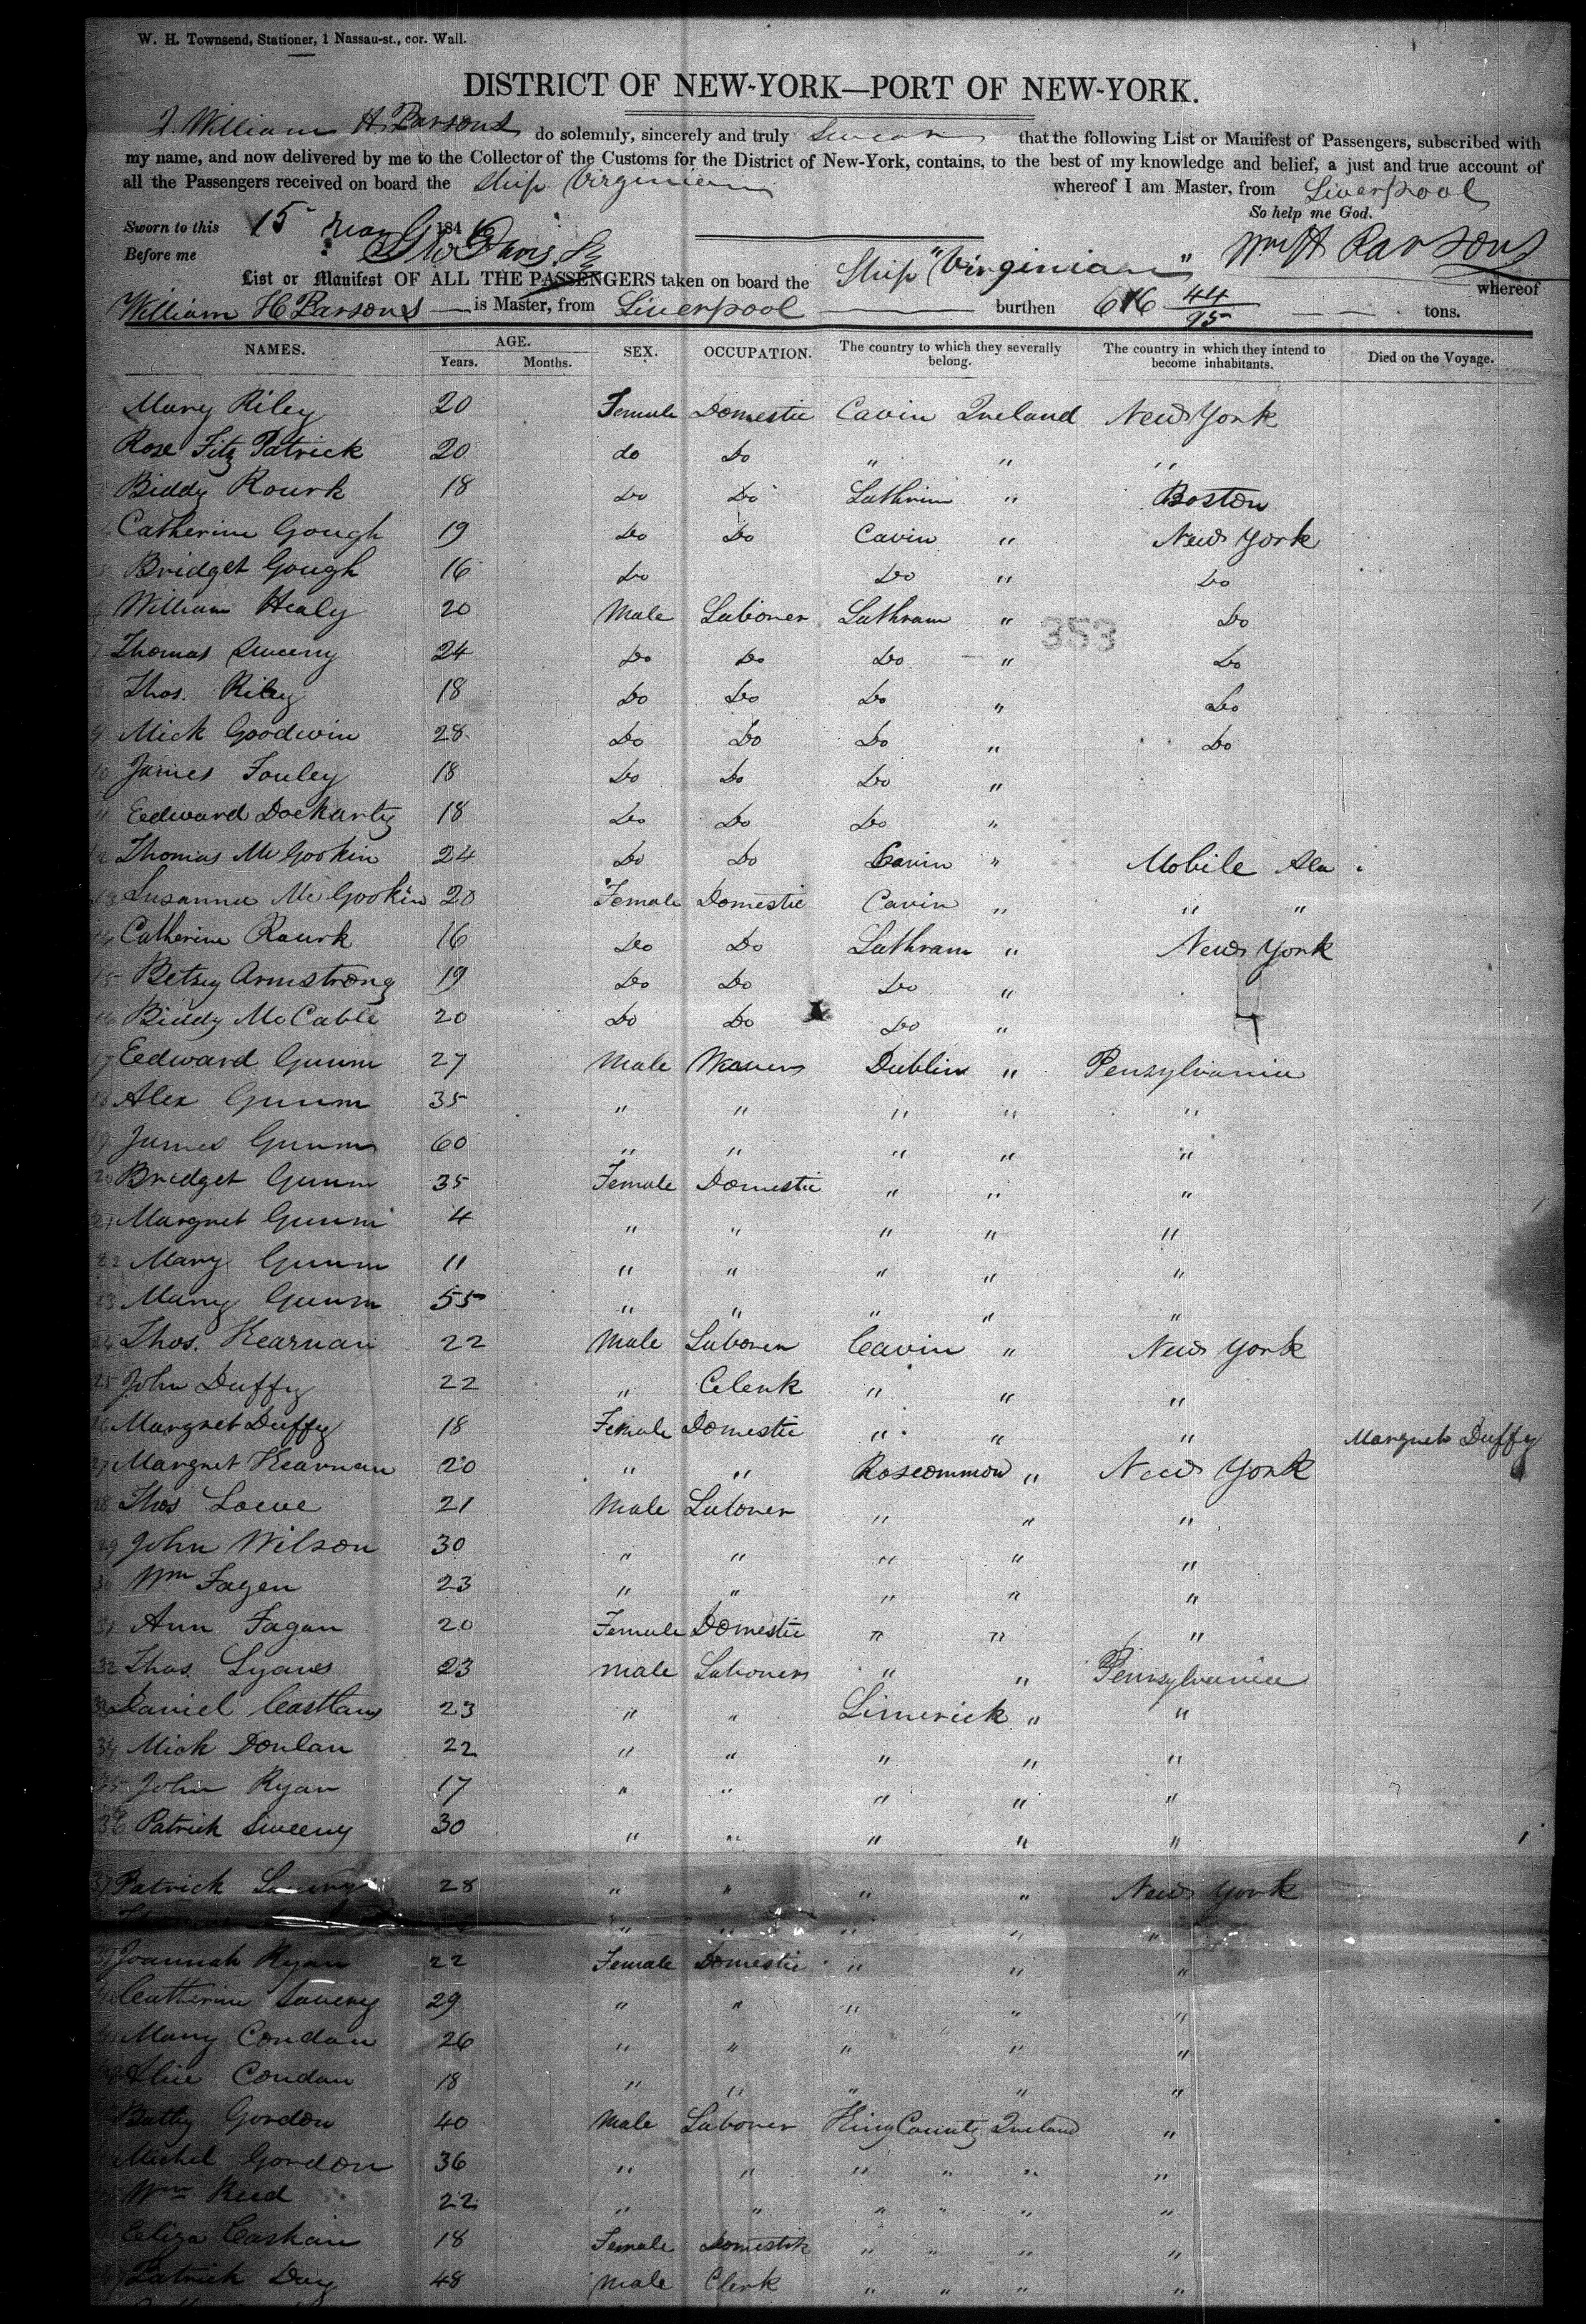 W. H. Townsend, Stationer, 1 Nassau-st., cor. Wall.
DISTRICT OF NEW-YORK—PORT OF NEW-YORK.
I, William H Parsons do solemnly, sincerely and truly Swear that the following List or Manifest of Passengers, subscribed with
my name, and now delivered by me to the Collector of the Customs for the District of New-York, contains, to the best of my knowledge and belief, a just and true account of
all the Passengers received on board the Ship Virginian whereof I am Master, from Liverpool
So help me God.
Sworn to this 15 184
Before me Wm H Parsons
List or Manifest OF ALL THE PASSENGERS taken on board the Ship "Virginian" whereof
William H Parsons is Master, from Liverpool burthen 616 44/95 tons.
NAMES. AGE. Years. Months. SEX. OCCUPATION. The country to which they severally belong. The country in which they intend to become inhabitants. Died on the Voyage.
Mary Riley 20 Female Domestic Cavin Ireland New York
Rose Fitz Patrick 20 do Do " " "
Biddy Rourk 18 Do Do Lathrim " Boston
Catherine Gough 19 Do Do Cavin " New York
5 Bridget Gough 16 Do Do " Do
6 William Healy 20 Male Laborer Lathram " Do
353
7 Thomas Sweeny 24 Do Do Do " Do
8 Thos. Riley 18 Do Do Do " Do
9 Mick Goodwin 28 Do Do Do " Do
10 James Fouley 18 Do Do Do "
11 Eedward Dockarty 18 Do Do Do "
12 Thomas McGookin 24 Do Do Cavin " Mobile Ala
13 Susanna McGookin 20 Female Domestic Cavin " " "
14 Catherine Rourk 16 Do Do Lathram " New York
15 Betsey Armstrong 19 Do Do Do "
16 Biddy McCable 20 Do Do Do "
17 Eedward Gunm 27 Male Weaver Dublin " Penzylvania
18 Alex Gunm 35 " " " " "
19 James Gunm 60 " " " " "
20 Bridget Gunm 35 Female Domestic " " "
21 Margnet Gunm 4 " " " " "
22 Mary Gunm 11 " " " " "
23 Mary Gunm 55 " " " " "
24 Thos. Kearnan 22 Male Laborer Cavin " New York
25 John Duffy 22 " Clerk " " "
26 Margnet Duffy 18 Female Domestic " " " Margnet Duffy
27 Margnet Kearnan 20 " " Roscommon " New York
28 Thos Loeve 21 Male Laborer " " "
29 John Wilson 30 " " " " "
30 Wm Fagen 23 " " " " "
31 Ann Fagan 20 Female Domestic " " "
32 Thos. Lyans 23 male Laborer " " Pensylvania
33 Daniel 23 " " Limerick " "
34 Mick Donlan 22 " " " " "
35 John Ryan 17 " " " " "
36 Patrick Sweeny 30 " " " " "
37 Patrick 28 " " " " New York
" " " " "
39 Joannah Ryan 22 Female Domestic " " "
Catherine 29 " " " " "
Mary Condan 26 " " " " "
Alice Condan 18 " " " " "
Gordon 40 Male Laborer King County Ireland "
Michel Gordon 36 " " " " " "
Wm Reed 22 " " " " " "
Eliza Caskain 18 Female Domestik " " " "
Patrick Day 48 Male Clerk " " " "